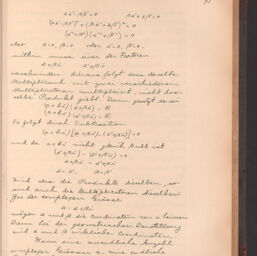 αα'-ββ'=0 βα'+αβ'=0
(αα'-ββ')²+(βα'+αβ')²=0
(α²+β²)(α'²+β'²)=0
also α=0, β=0 oder α'=0, β'=0,
mithin muss einer der Factoren
α+βi α'+β'i
verschwinden. Hieraus folgt dass dasselbe
Multiplicand mit zwei verschiedenen
Multiplicatoren multiplicirt, nicht das-
selbe Produkt giebt. Denn gesetzt es sei
(a+bi)(α+βi) = R
(a+bi)(α'+β'i) = R
So folgt durch Subtraction
(a+bi)[(α+βi)-(α'+β'i)]=0
und da a+bi nicht gleich Null ist
(α+βi)-(α'+β'i)=0
α+βi = α'+β'i
α=α', β=β'
Sind also die Produkte dieselben, so
sind auch die Multiplicatoren dieselben.
In der complexen Grösse
α+βi
mögen α und β die Coordinaten von a heissen
Denn bei der geometrischen Darstellung
sind α und β wirkliche Coordinaten.
Wenn eine unendliche Anzahl
complexer Grössen a, eine endliche